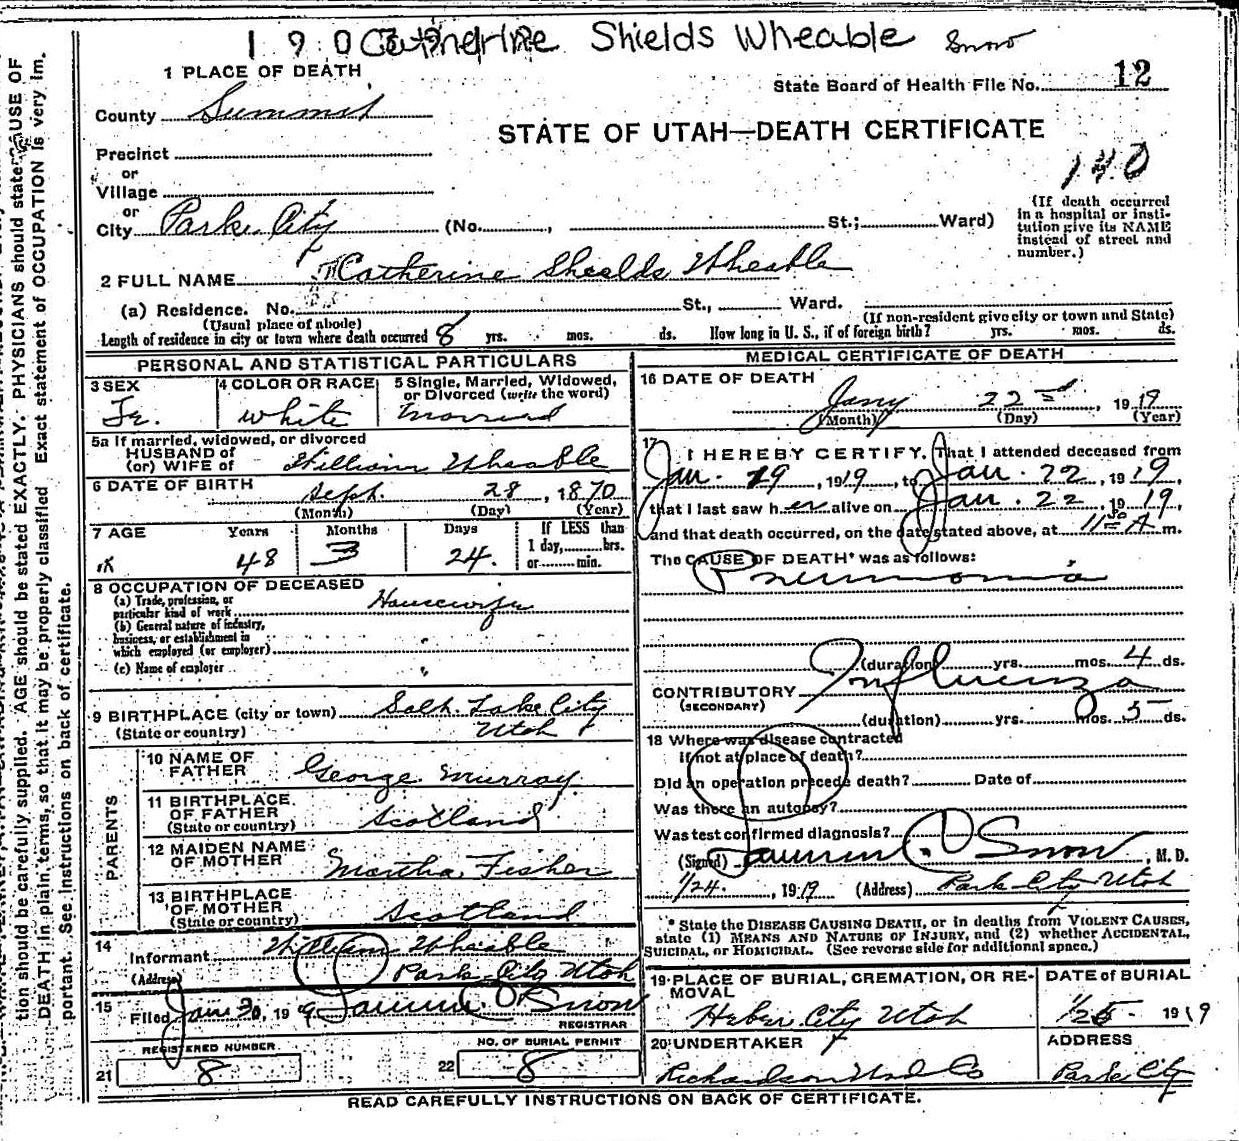 1 9 0 Catherine Shields Wheable Snow
1 PLACE OF DEATH
State Board of Health File No. 12
County Summit
STATE OF UTAH—DEATH CERTIFICATE
Precinct
or
Village
140
or
City Park City (No. , St.; Ward)
(If death occurred
in a hospital or insti-
tution give its NAME
instead of street and
number.)
2 FULL NAME Catherine Sheelds Wheable
(a) Residence. No. St., Ward.
(Usual place of abode) (If non-resident give city or town and State)
Length of residence in city or town where death occurred 8 yrs. mos. ds. How long in U. S., if of foreign birth? yrs. mos. ds.
PERSONAL AND STATISTICAL PARTICULARS
3 SEX
Fe.
4 COLOR OR RACE
White
5 Single, Married, Widowed,
or Divorced (write the word)
Married
5a If married, widowed, or divorced
HUSBAND of
(or) WIFE of William Wheable
6 DATE OF BIRTH Sept. 28, 1870
(Month) (Day) (Year)
7 AGE Years Months Days
48 3 24.
If LESS than
1 day, hrs.
or min.
8 OCCUPATION OF DECEASED
(a) Trade, profession, or
particular kind of work Housewife
(b) General nature of industry,
business, or establishment in
which employed (or employer)
(c) Name of employer
9 BIRTHPLACE (city or town) Salt Lake City
(State or country) Utah
PARENTS
10 NAME OF
FATHER George Murray
11 BIRTHPLACE
OF FATHER
(State or country) Scotland
12 MAIDEN NAME
OF MOTHER Martha Fisher
13 BIRTHPLACE
OF MOTHER
(State or country) Scotland
14
Informant William Wheable
(Address) Park City Utah
15
Filed Jan 30, 19 9 O Snow
REGISTRAR
REGISTERED NUMBER
21 8
NO. OF BURIAL PERMIT
22 8
MEDICAL CERTIFICATE OF DEATH
16 DATE OF DEATH
Jany 22nd, 1919
(Month) (Day) (Year)
17
I HEREBY CERTIFY, That I attended deceased from
Jan. 19, 1919, to Jan. 22, 1919,
that I last saw her alive on Jan. 22, 1919,
and that death occurred, on the date stated above, at 11 30 A m.
The CAUSE OF DEATH* was as follows:
Pneumonia
(duration) yrs. mos. 4 ds.
CONTRIBUTORY Influenza
(SECONDARY)
(duration) yrs. mos. 5 ds.
18 Where was disease contracted
if not at place of death?
Did an operation precede death? Date of
Was there an autopsy?
Was test confirmed diagnosis?
(Signed) O Snow, M. D.
1/24, 1919 (Address) Park City Utah
* State the DISEASE CAUSING DEATH, or in deaths from VIOLENT CAUSES,
state (1) MEANS AND NATURE OF INJURY, and (2) whether ACCIDENTAL,
SUICIDAL, or HOMICIDAL. (See reverse side for additional space.)
19 PLACE OF BURIAL, CREMATION, OR RE-
MOVAL
Heber City Utah
DATE of BURIAL
1/25 1919
20 UNDERTAKER
Richardson Und Co
ADDRESS
Park City
READ CAREFULLY INSTRUCTIONS ON BACK OF CERTIFICATE.
tion should be carefully supplied. AGE should be stated EXACTLY. PHYSICIANS should state CAUSE OF
DEATH in plain terms, so that it may be properly classified. Exact statement of OCCUPATION is very im-
portant. See instructions on back of certificate.